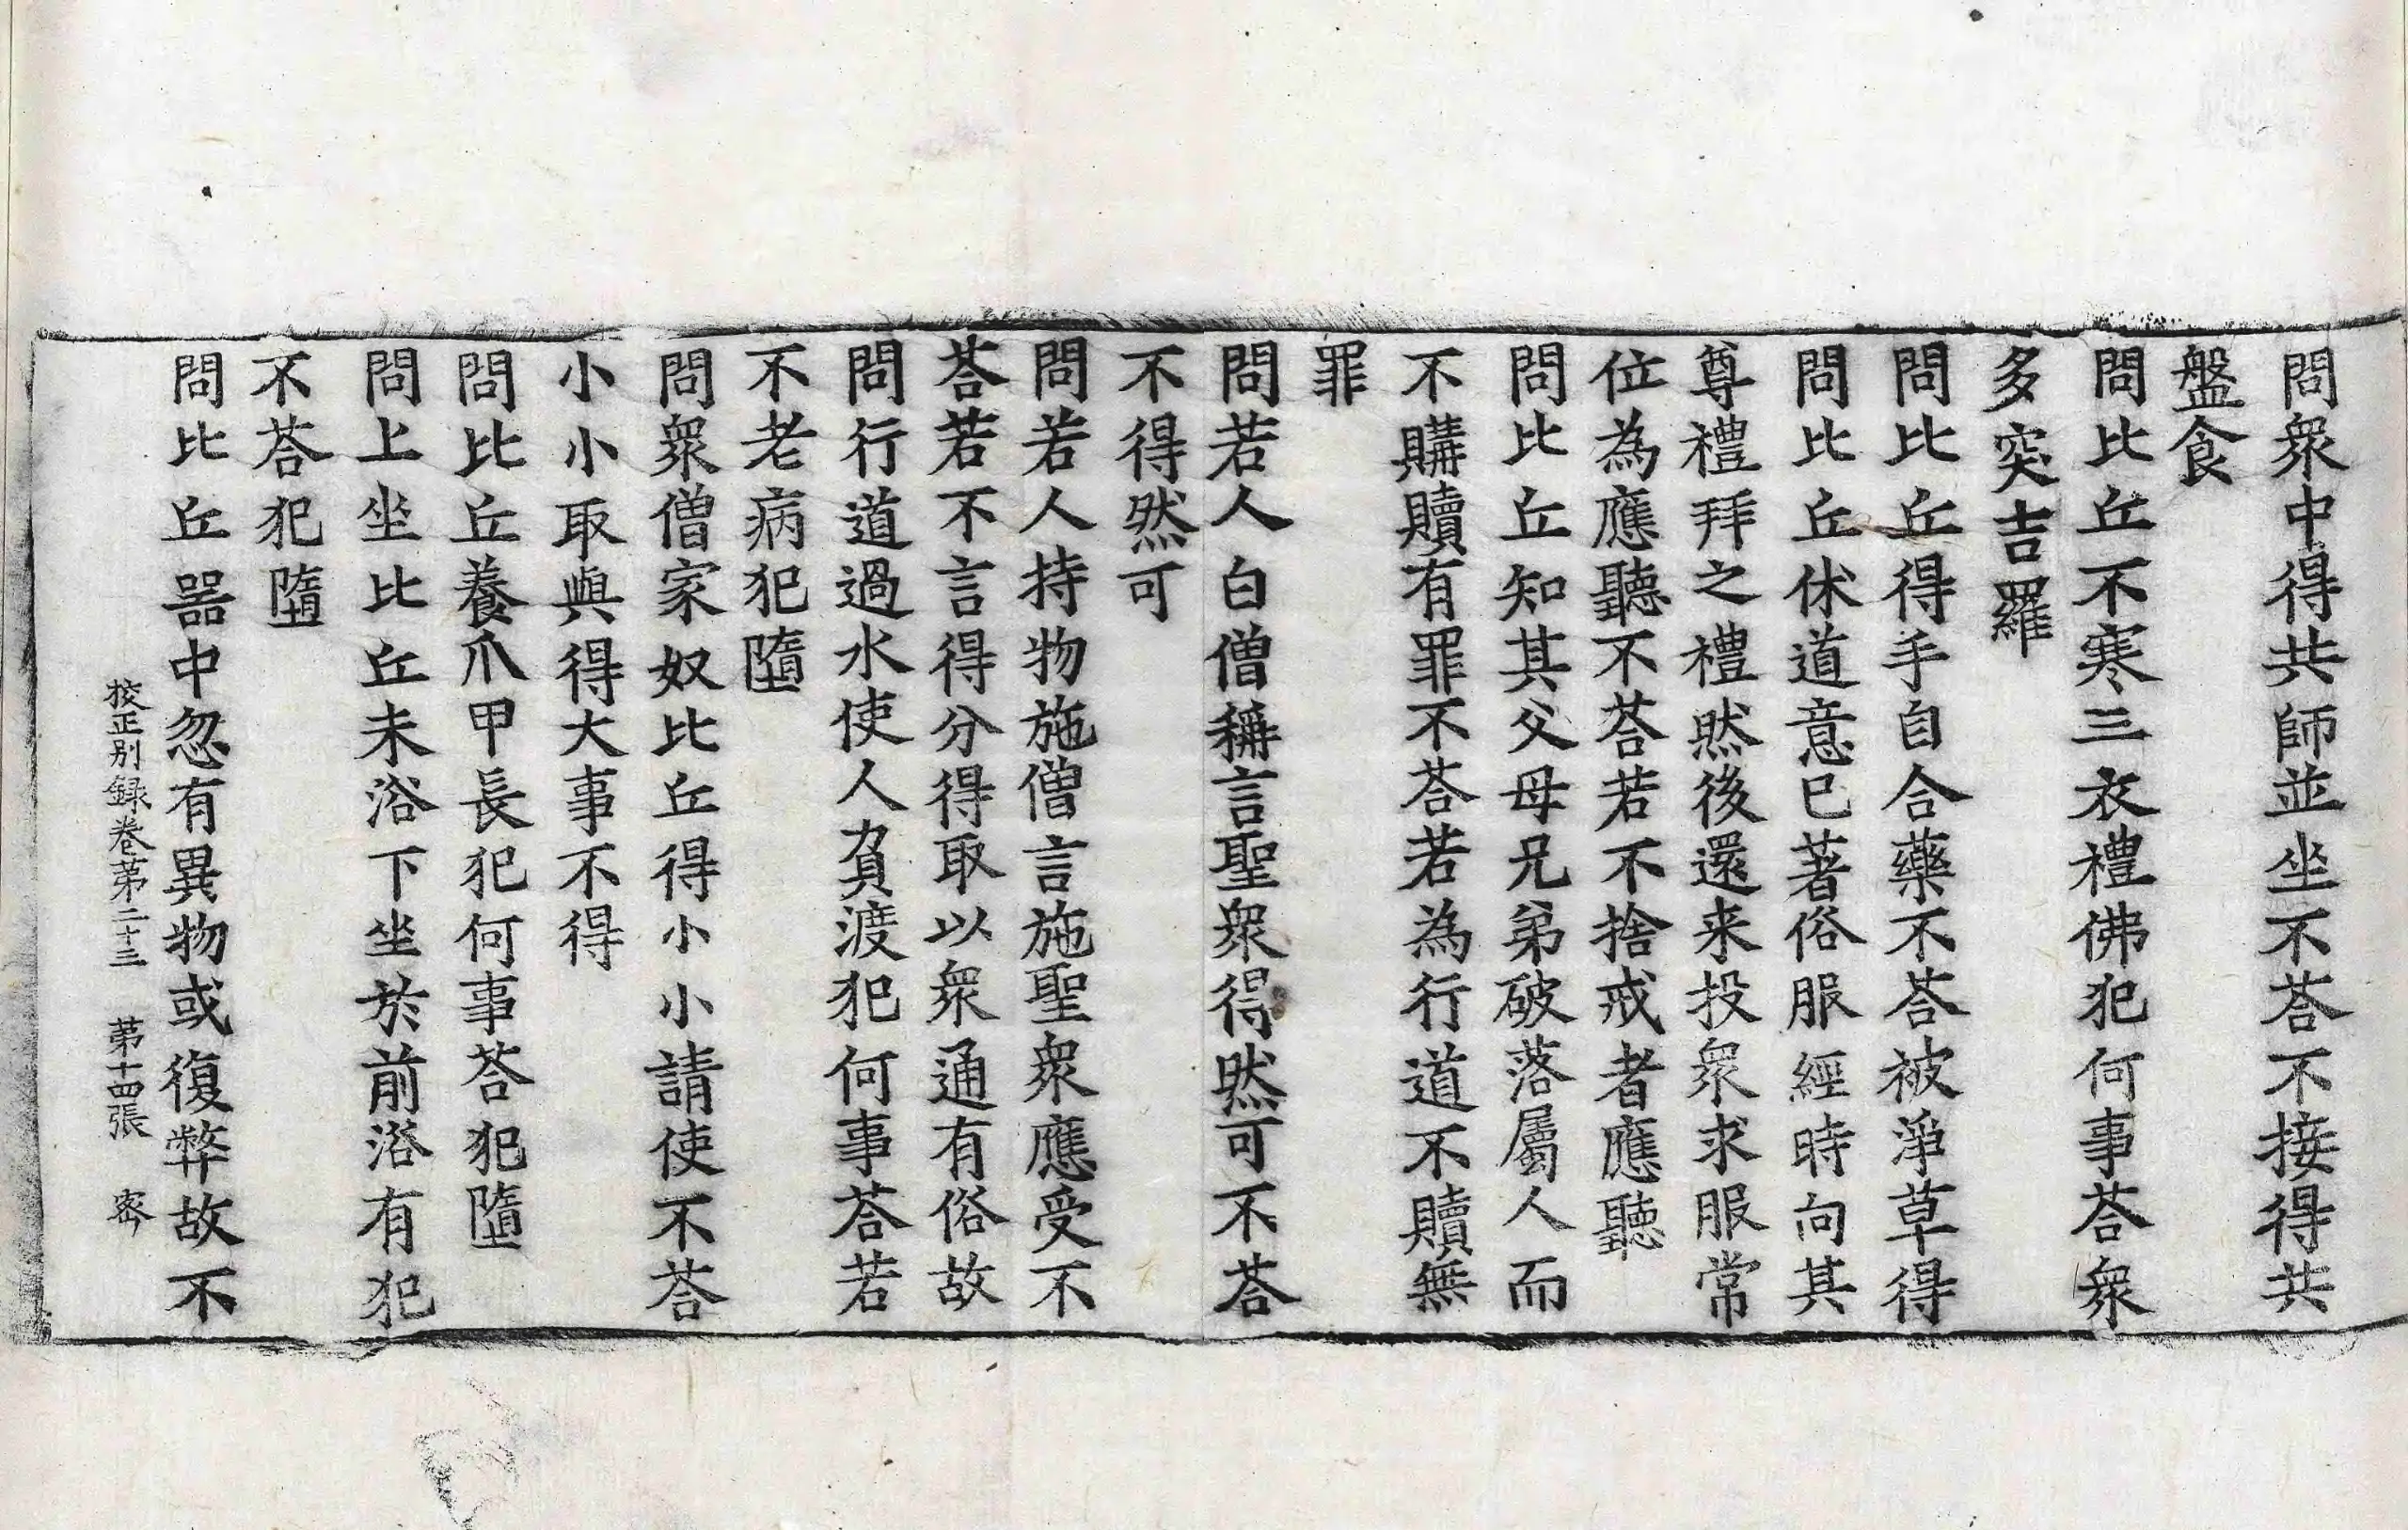 問衆中得共師並坐不荅不接得共
盤食
問比丘不寒三衣禮佛犯何事荅衆
多突吉羅
問比丘得手自合藥不荅被淨草得
問比丘休道意已著俗服經時向其
尊禮拜之禮然後還来投衆求服常
位為應聽不荅若不捨戒者應聽
問比丘知其父母兄弟破落屬人而
不購贖有罪不荅若為行道不贖無
罪
問若人白僧稱言聖衆得然可不荅
不得然可
問若人持物施僧言施聖衆應受不
荅若不言得分得取以衆通有俗故
問行道過水使人負渡犯何事荅若
不老病犯墮
問衆僧家奴比丘得小小請使不荅
小小取與得大事不得
問比丘養爪甲長犯何事荅犯墮
問上坐比丘未浴下坐於前浴有犯
不荅犯墮
問比丘器中忽有異物或復弊故不
挍正别録卷苐二十三 苐十四張 宻